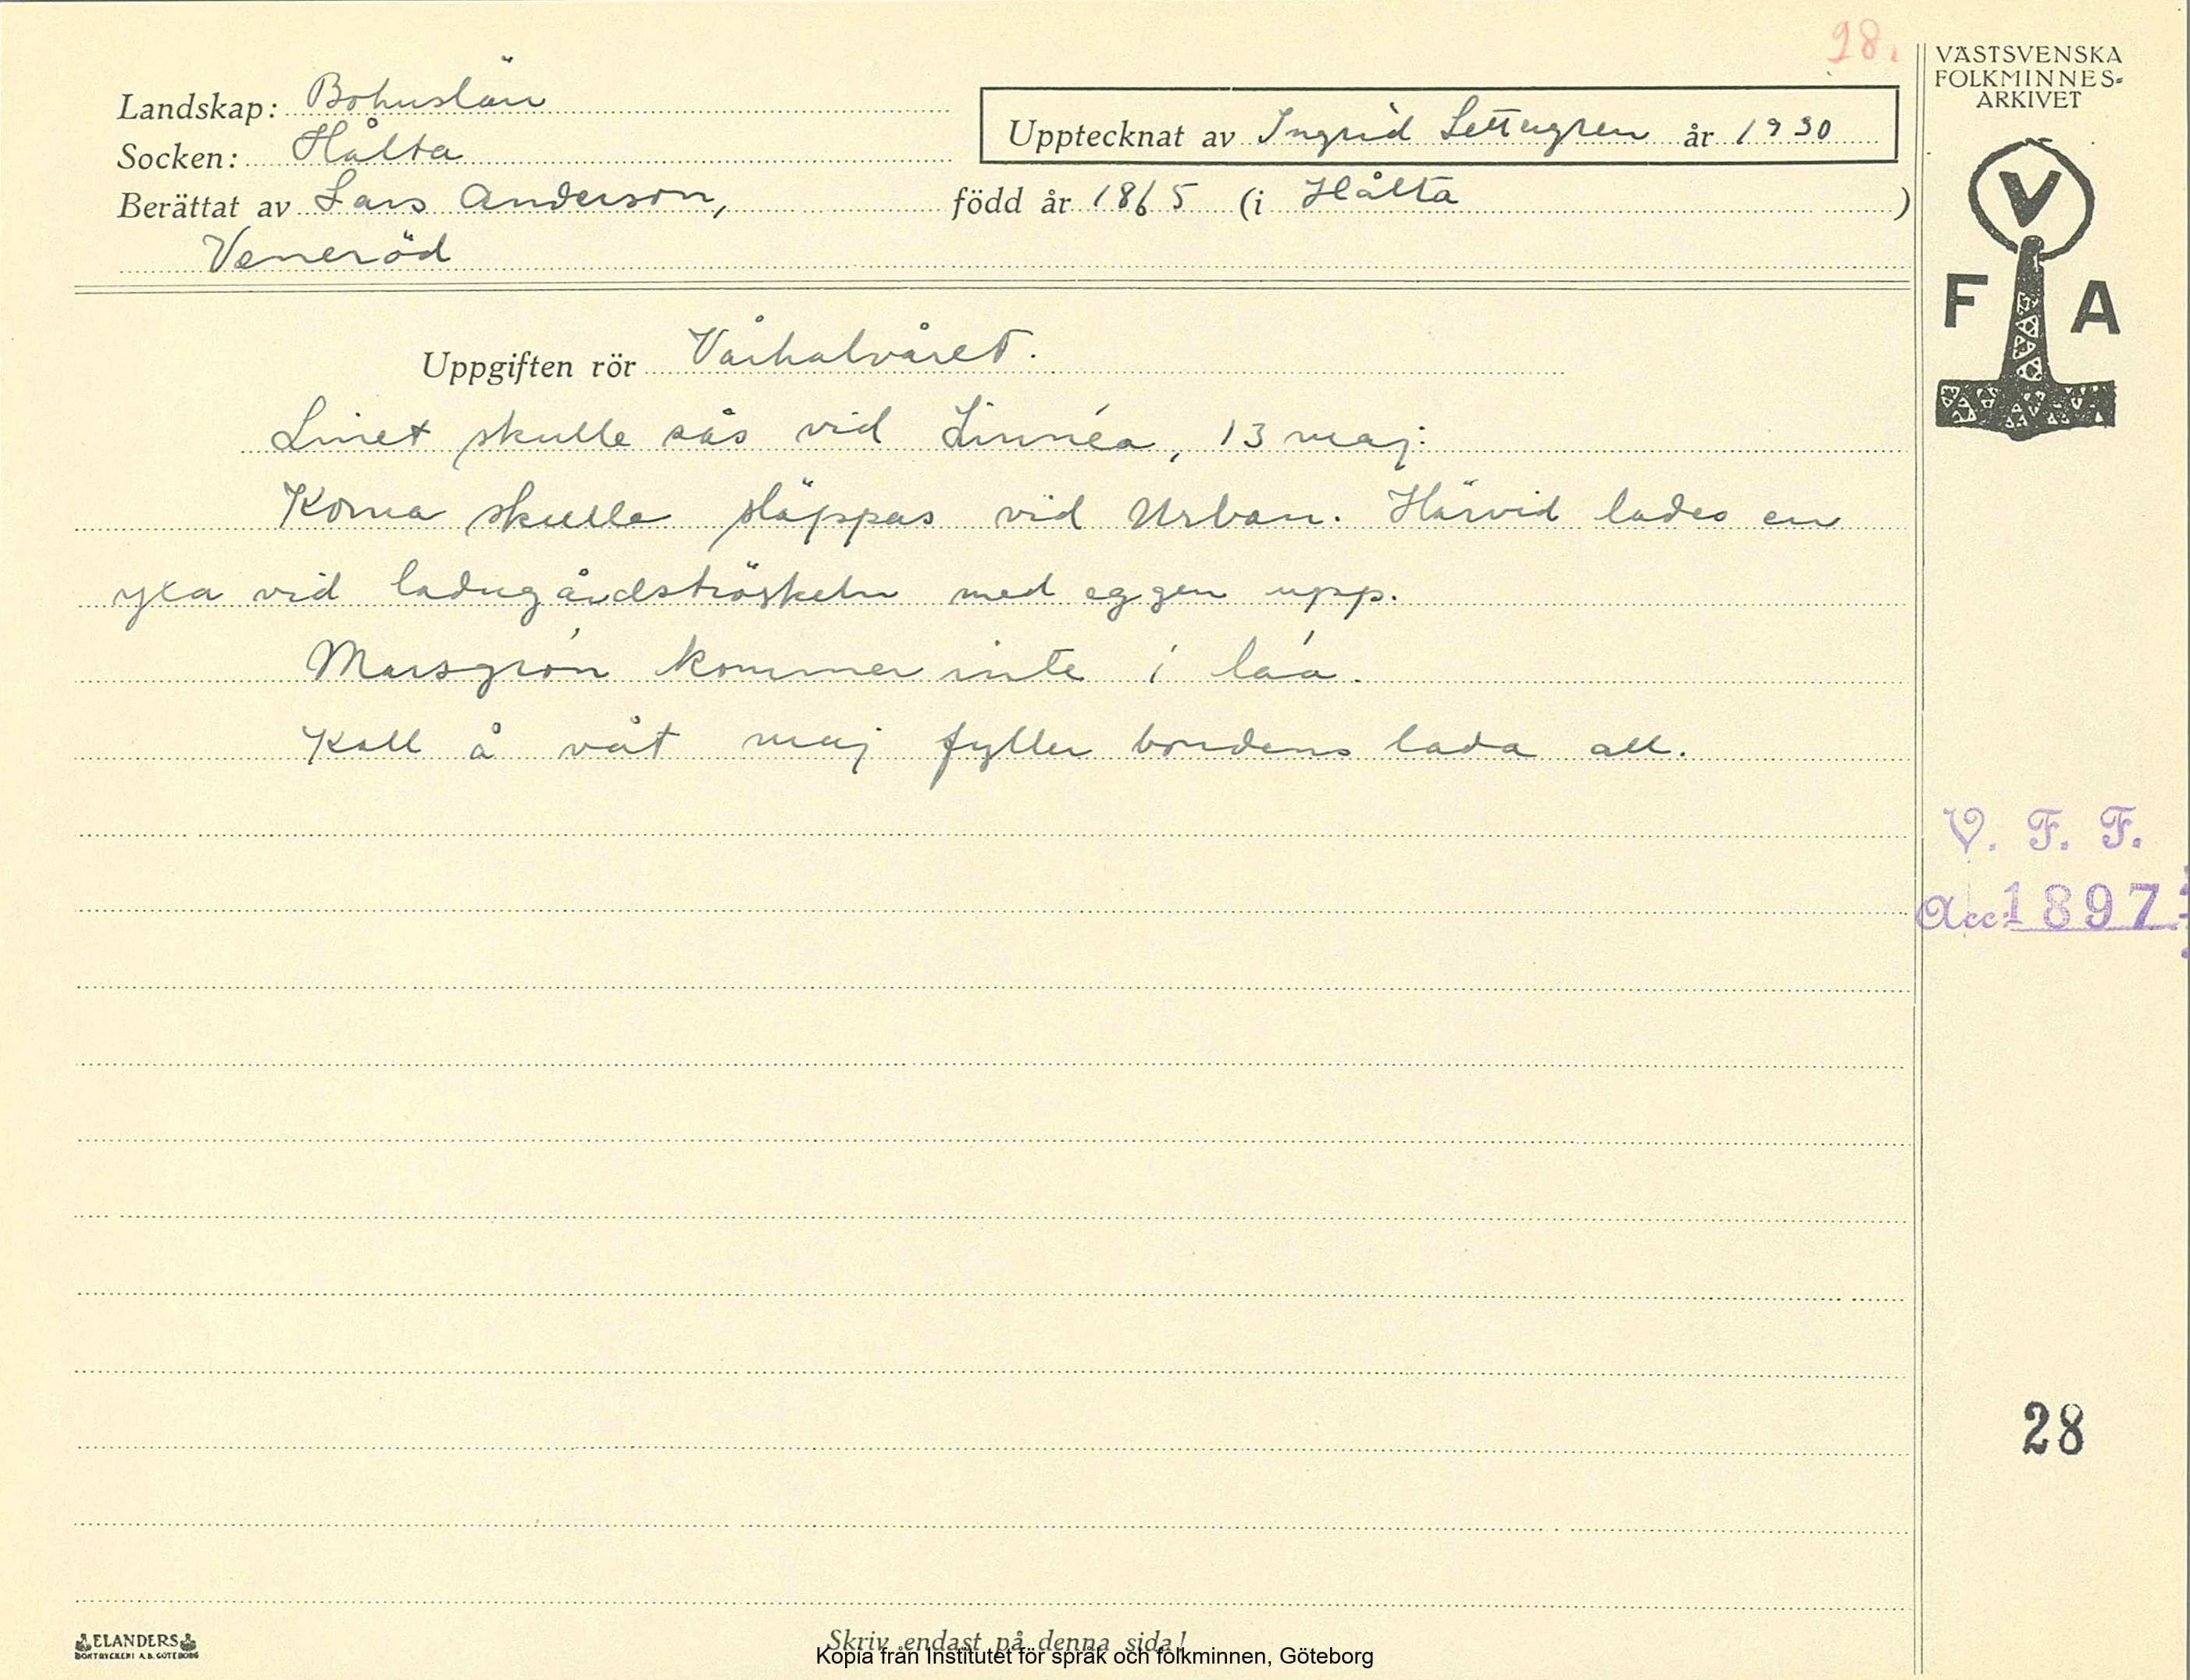 28.
Landskap: Bohuslän
Socken: Hålta
Berättat av Lars Anderson,
Veneröd
Upptecknat av Ingrid år 1930
född år 1865 (i Hålta )
Uppgiften rör Vårhalvåret.
Linet skulle sås vid Linnéa, 13 maj.
Korna skulle släppas vid Urban. Härvid lades en
yxa vid ladugårdströskeln med eggen upp.
Marsgrón kommer inte i láa.
Kall å våt maj fyller bondens lada all.
VÄSTSVENSKA
FOLKMINNES-
ARKIVET
V
F A
V. F. F.
Acc. 1897
28
ELANDERS
BOKTRYCKERI A.B. GÖTEBORG
Skriv endast på denna sida!
Kopia från Institutet för språk och folkminnen, Göteborg